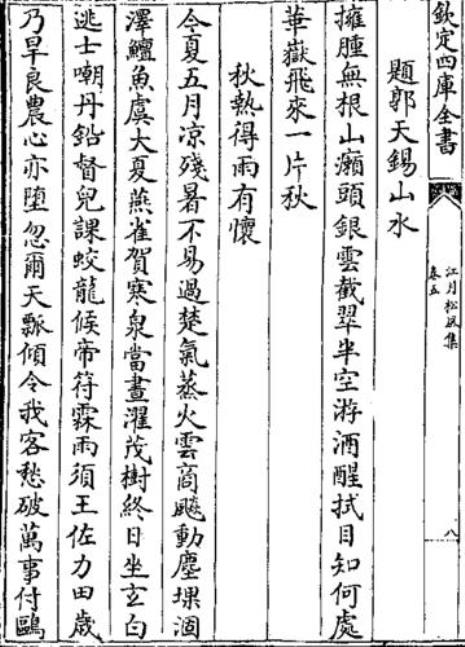 欽定四庫全書
江月松風集
卷五
八
題郭天錫山水
擁腫無根山瀨頭銀雲截翠半空游酒醒拭目知何處
華嶽飛來一片秋
秋熱得雨有懷
今夏五月凉殘暑不易過楚氣蒸火雲商飈動塵堁涸
澤鱣魚虞大夏燕雀賀寒泉當晝濯茂樹終日坐玄白
逃士嘲丹鉛督兒課蛟龍候帝符霖雨須王佐力田歲
乃旱良農心亦墮忽爾天瓢傾令我客愁破萬事付鷗